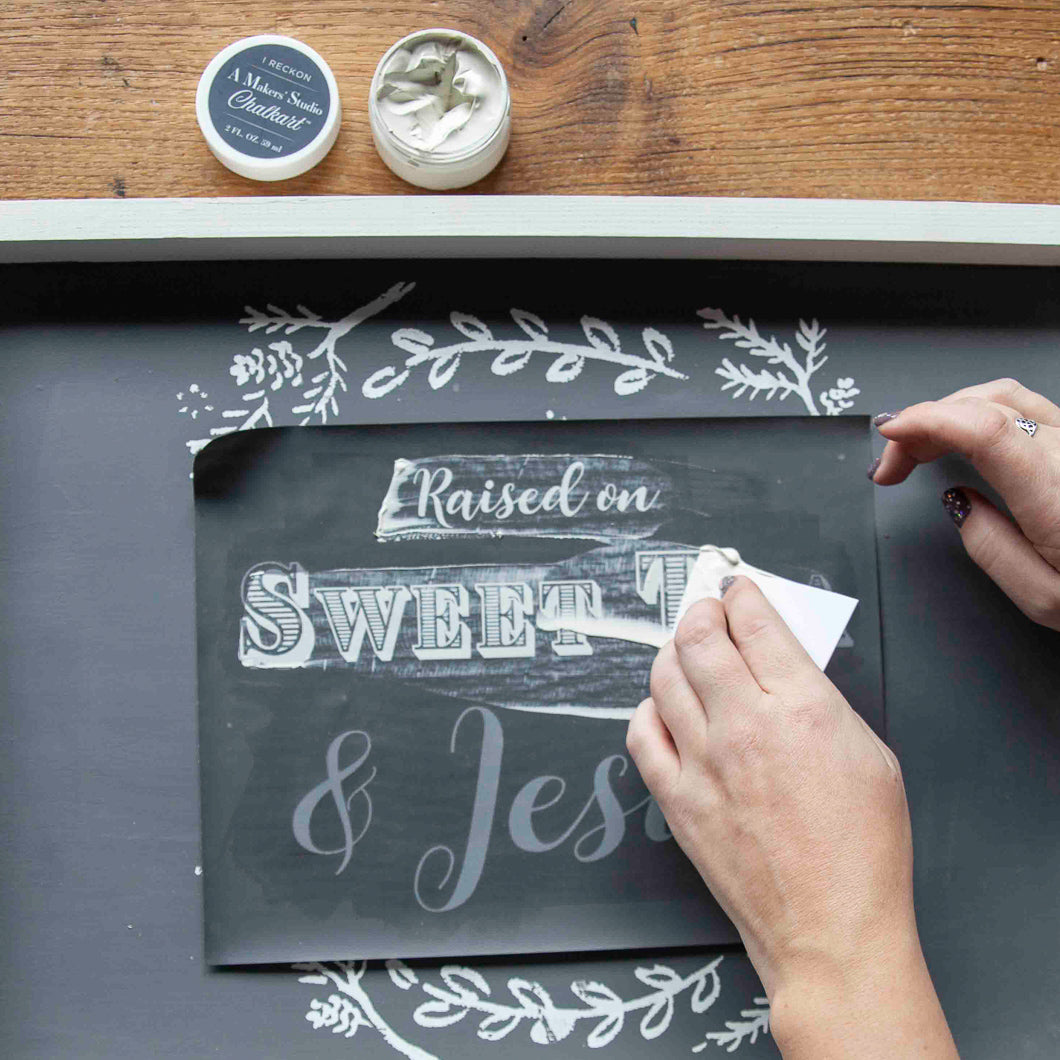 I RECKON
A MAKERS' STUDIO
Chalkart™
2 FL. OZ. 59 ml
Raised on
SWEET T
& Jes